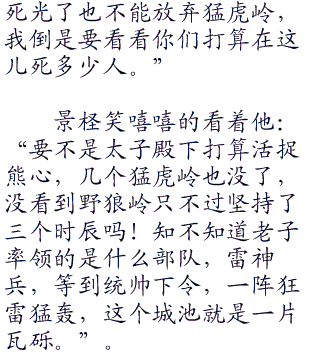 死光了也不能放弃猛虎岭，
我倒是要看看你们打算在这
儿死多少人。”
景柽笑嘻嘻的看着他：
“要不是太子殿下打算活捉
熊心，几个猛虎岭也没了，
没看到野狼岭只不过坚持了
三个时辰吗！知不知道老子
率领的是什么部队，雷神
兵，等到统帅下令，一阵狂
雷猛轰，这个城池就是一片
瓦砾。”。